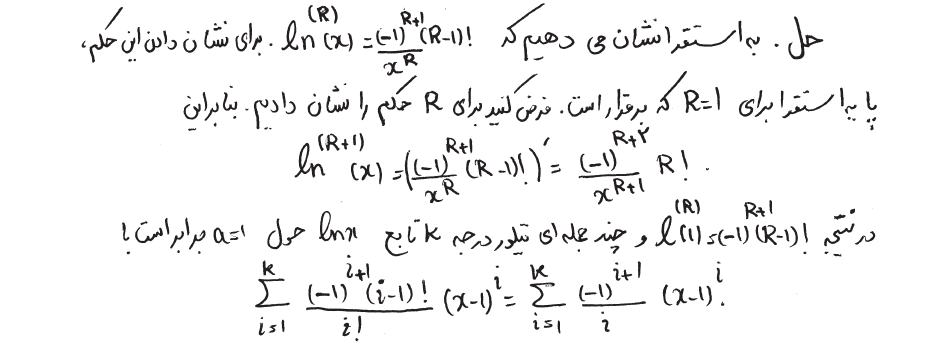 حل. به استقرا نشان می دهیم که ln^(R)(x) = (-1)^(R+1) (R-1)! / x^R . برای نشان دادن این حکم،
پایه استقرا برای R=1 که برقرار است. فرض کنید برای R حکم را نشان دادیم. بنابراین
ln^(R+1)(x) = ((-1)^(R+1) (R-1)! / x^R)' = (-1)^(R+۲) / x^(R+1) R! .
در نتیجه ln^(R)(1) = (-1)^(R+1) (R-1)! و چند جمله ای تیلور درجه k تابع lnx حول a=1 برابر است با
∑_{i=1}^{k} (-1)^(i+1) (i-1)! / i! (x-1)^i = ∑_{i=1}^{k} (-1)^(i+1) / i (x-1)^i .